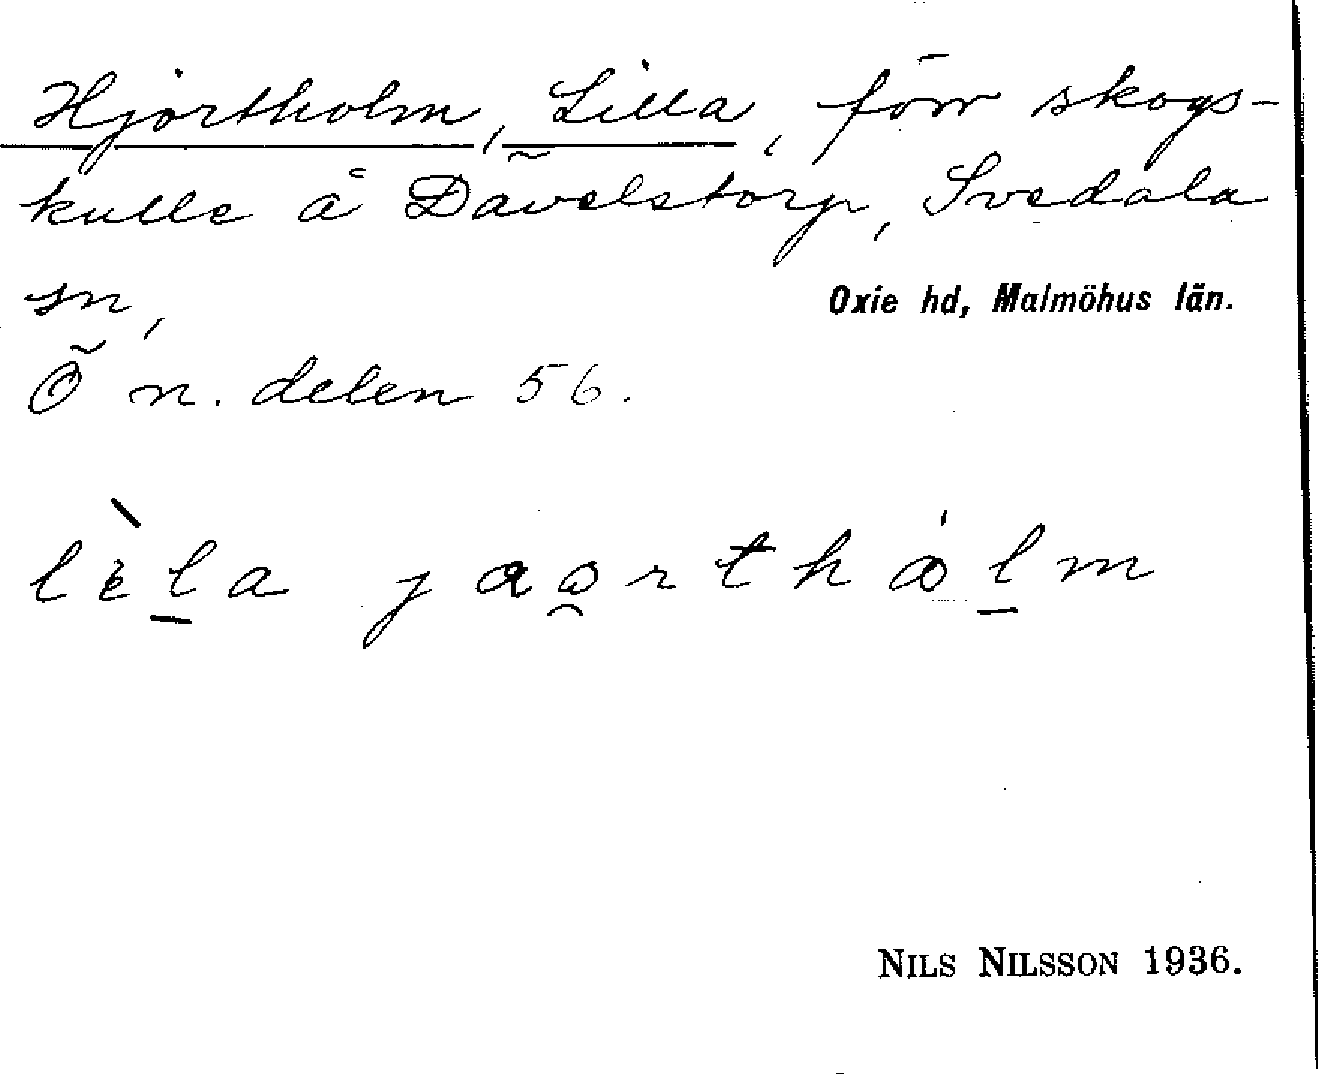 Hjortholm, Lilla, förr skogs-
kulle å Dävelstorp, Svedala
sn, Oxie hd, Malmöhus län.
Ö n. delen 56.
lèla jaorthålm
NILS NILSSON 1936.